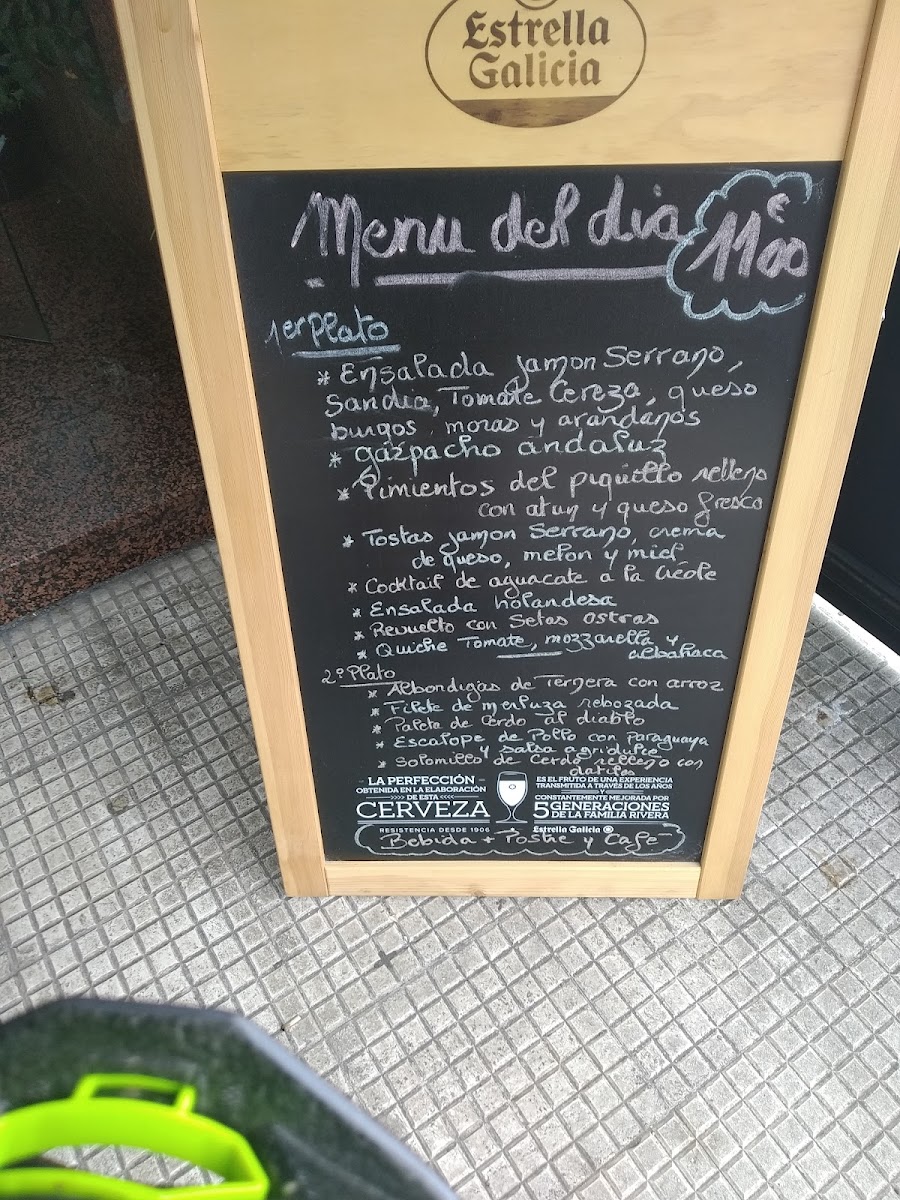 Estrella
Galicia
Menu del dia 11'00 €
1er Plato
* Ensalada jamon Serrano,
Sandia, Tomate Cereza, queso
burgos, moras y arandanos
* gazpacho andaluz
* Pimientos del piquillo relleno
con atun y queso fresco
* Tostas jamon Serrano, crema
de queso, melon y miel
* Cocktail de aguacate a la Créole
* Ensalada holandesa
* Revuelto con Setas Ostras
* Quiche Tomate, mozzarella y
albahaca
2º Plato
* Albondigas de Ternera con arroz
* Filete de merluza rebozada
* Paleta de Cerdo al diablo
* Escalope de Pollo con paraguaya
y salsa agridulce
* Solomillo de Cerdo relleno con
datiles
LA PERFECCIÓN
OBTENIDA EN LA ELABORACIÓN
>>>> DE ESTA <<<<
CERVEZA
RESISTENCIA DESDE 1906
ES EL FRUTO DE UNA EXPERIENCIA
TRANSMITIDA A TRAVÉS DE LOS AÑOS
Y
CONSTANTEMENTE MEJORADA POR
5 GENERACIONES
DE LA FAMILIA RIVERA
Estrella Galicia
Bebida + Postre y Café